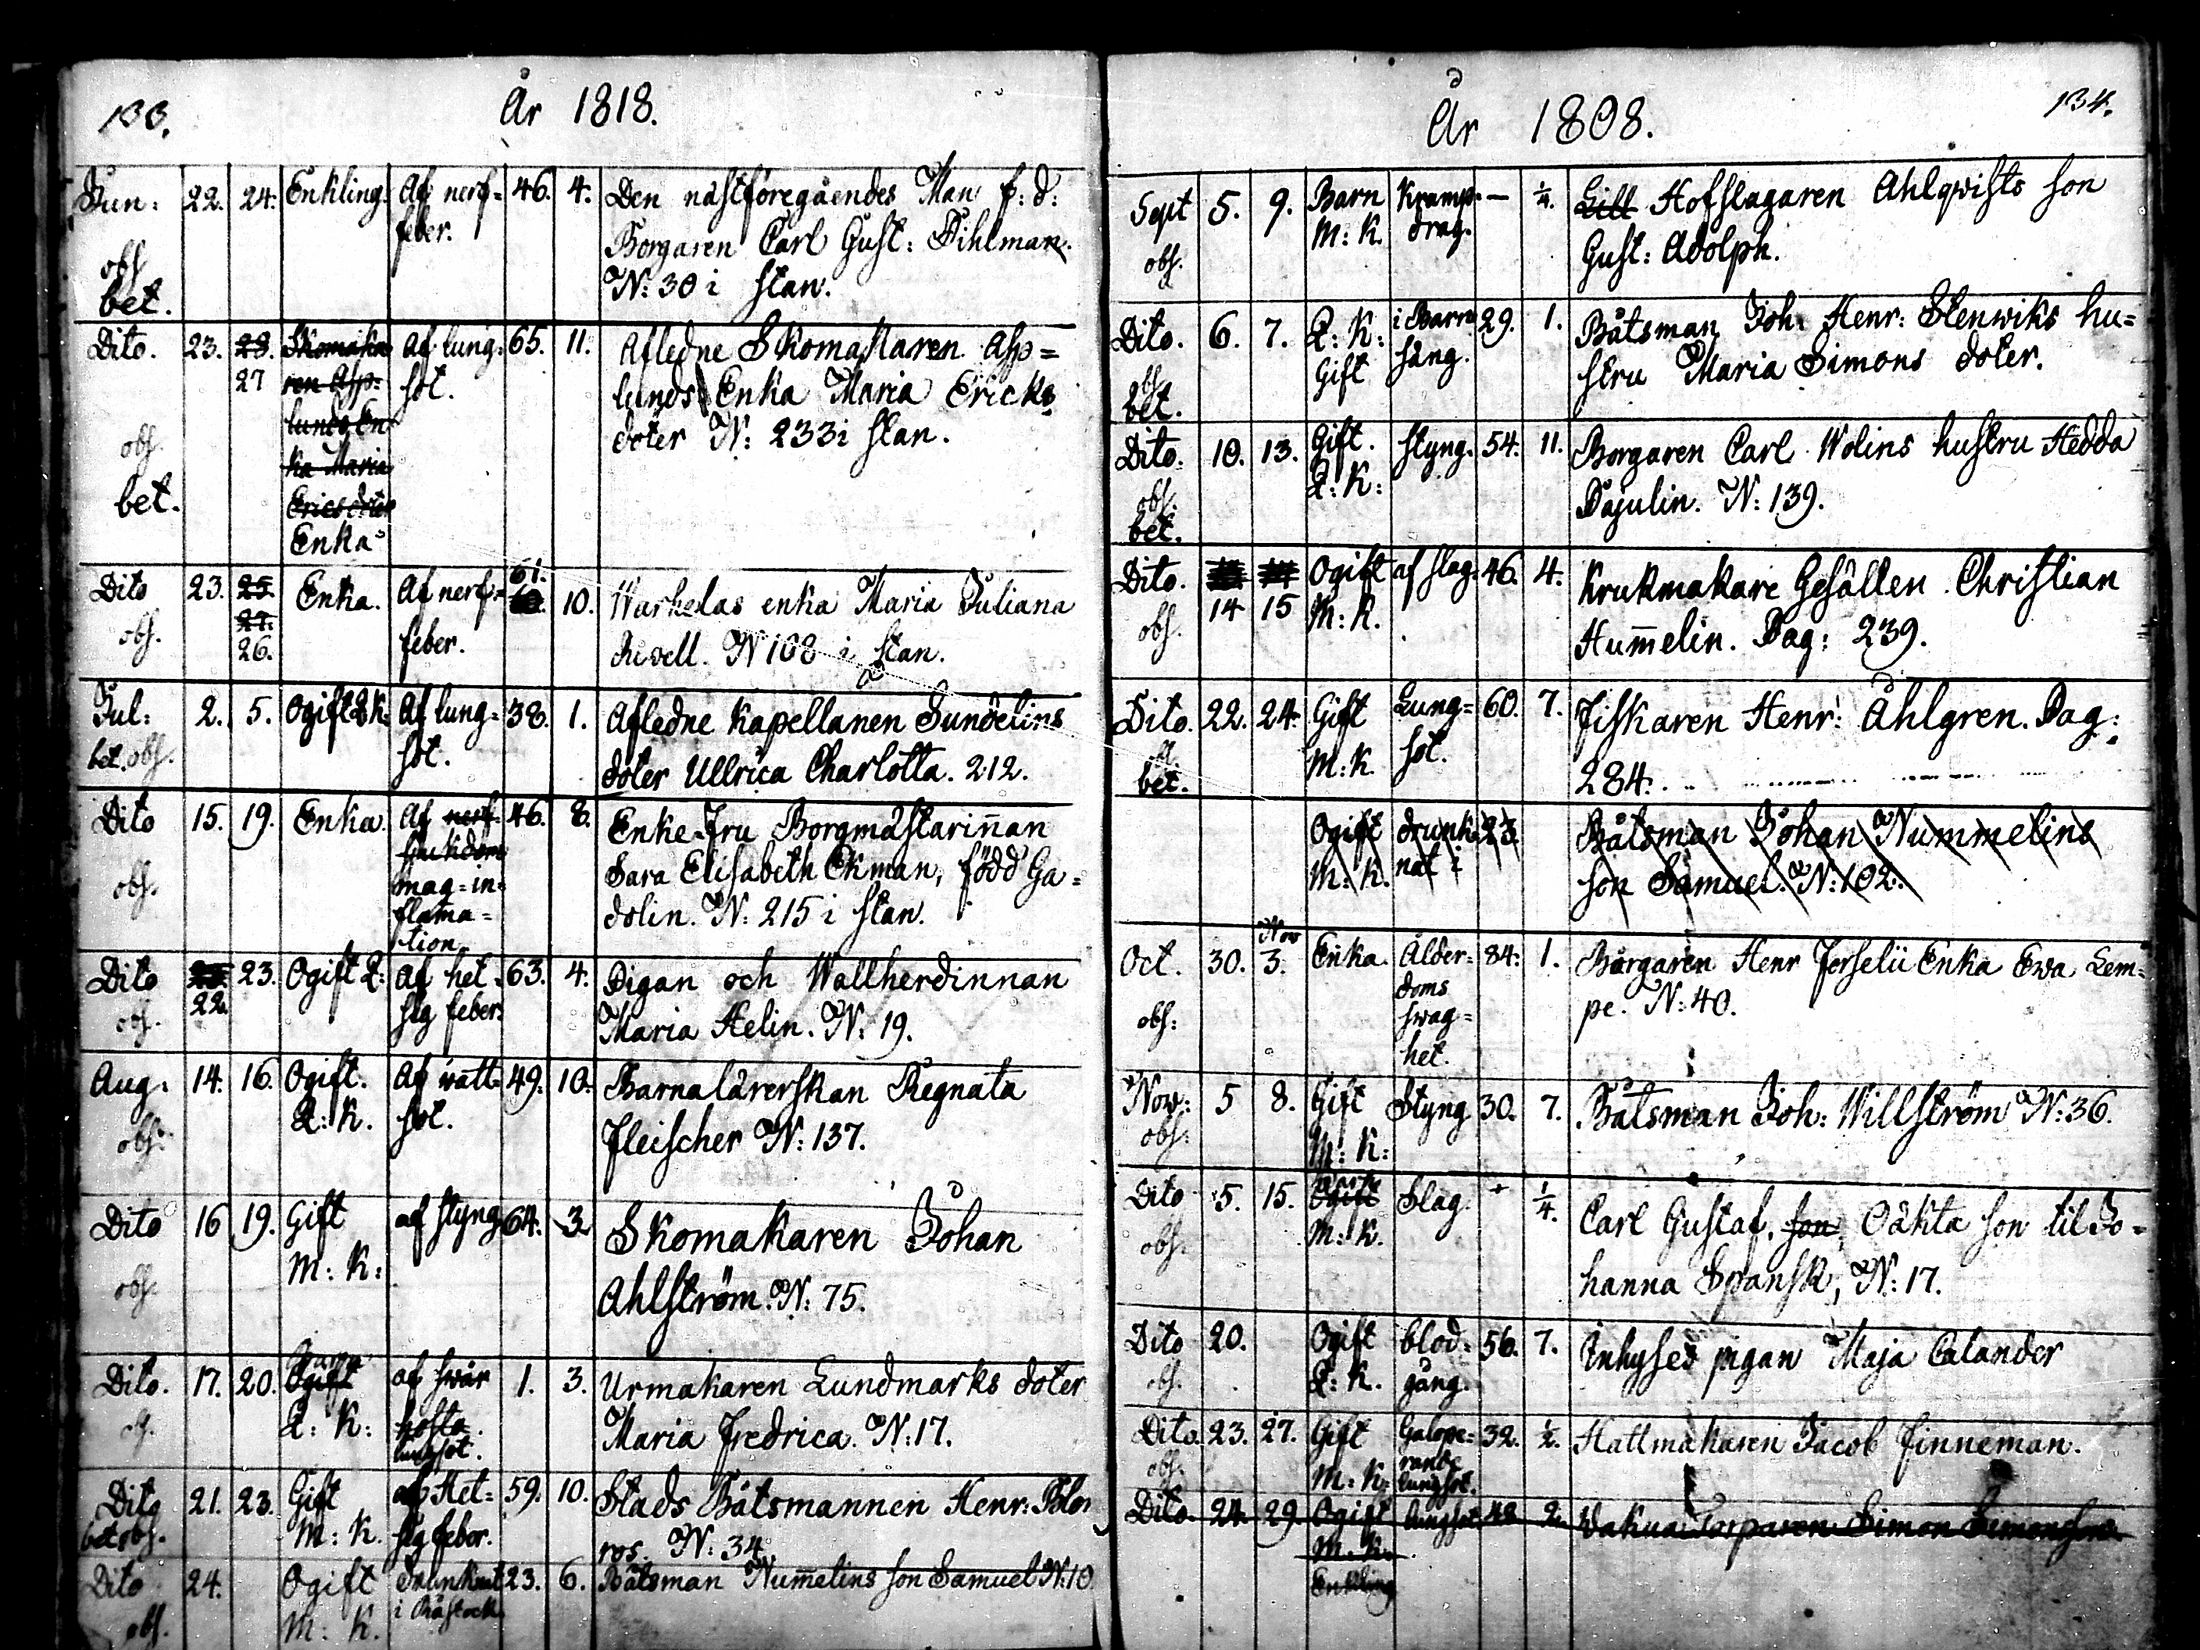 133.
År 1818.
Jun: 22. 24. Enkling. Af nerf= 46. 4. Den nästföregåendes Man f: d:
feber. Borgaren Carl Gust: Tihlman.
obs N: 30 i stan.
bet.
Dito. 23. 28. Skomaka Af lung= 65. 11. Afledne Skomakaren Asp=
27 ren Asp= sot. lunds Enka Maria Ericks
lunds En doter N: 233 i stan.
obs ka Maria
bet. Ericsdoter
Enka=
Dito 23. 25. Enka. Af nerf= 61. 10. Warhelas enka Maria Juliana
obs. 27. feber. N 108 i stan.
26.
Jul: 2. 5. Ogift Q K. Af lung= 38. 1. Afledne Kapellanen Sundelins
bet. obs. sot. doter Ullrica Charlotta. 212.
Dito 15. 19. Enka. Af nerf= 46. 8. Enke Fru Borgmästarinnan
sjukdom Sara Elisabeth Ekman, född Ga=
obs. mag=in= dolin. N: 215 i stan.
flama=
tion.
Dito 22. 23. Ogift Q: Af het= 63. 4. Pigan och Wallherdinnan
obs. sig feber. Maria Helin. N: 19.
Aug: 14. 16. Ogift. Af watt= 49. 10. Barnalärerskan Regnata
obs: Q: K. sot. Fleischer N: 137.
Dito 16 19. Gift af styng 64. 3 Skomakaren Johan
obs. M: K: Ahlström. N: 75.
Dito. 17. 20. Barn Ogift af swår 1. 3. Urmakaren Lundmarks doter
obs. Q: K: hosta. Maria Fredrica. N: 17.
lungsot.
Dito 21. 23. Gift af Het= 59. 10. Stads Båtsmannen Henr:
bet obs. M: K. sig feber. ros. N: 34
Dito 24. Ogift Drunknat 23. 6. Båtsman Nummelins son Samuel N: 10
obs. M: K. i
134.
År 1808.
Sept 5. 9. Barn Kramp= — 1/4. Hofslagaren Ahlqwists son
obs. M: K. drag. Gust: Adolph.
Dito. 6. 7. Q: K: i Barn 29. 1. Båtsman Joh: Henr: Stenwiks hu=
obs. Gift säng. stru Maria Simons doter.
bet.
Dito. 10. 13. Gift. styng. 54. 11. Borgaren Carl Wolins hustru Hedda
obs. Q: K: Dajulin. N: 139.
bet.
Dito. 14 15 Ogift af slag. 46. 4. Krukmakare Gesällen Christian
obs. M: K. Hummelin. Pag: 239.
Dito. 22. 24. Gift Lung= 60. 7. Fiskaren Henr: Åhlgren. Pag:
bet. M: K. sot. 284.
Ogift drunk 23 Båtsman Johan Nummelins
M: K. nat i son Samuel. N: 102.
Oct. 30. Nov 3. Enka. Ålder= 84. 1. Bårgaren Henr Forselii Enka Ewa Lem=
doms pe. N: 40.
obs: swag=
het.
Now: 5 8. Gift Styng 30. 7. Båtsman Joh: Willström N: 36.
obs: M: K:
Dito 5. 15. Ogift Slag. 1/4. Carl Gustaf, son Oäkta son til Jo=
obs. M: K. hanna Spansk, N: 17.
Dito 20. Ogift blod= 56. 7. Inhyses pigan Maja Calander
obs. Q: K. gång.
Dito. 23. 27. Gift Galope= 32. 1/2. Hattmakaren Jacob Finneman.
obs. M: K: rande
lungsot.
Dito. 24. 29 Ogift lungsot 48 2. Torparen Simon Simonsson
M: K.
Enkling